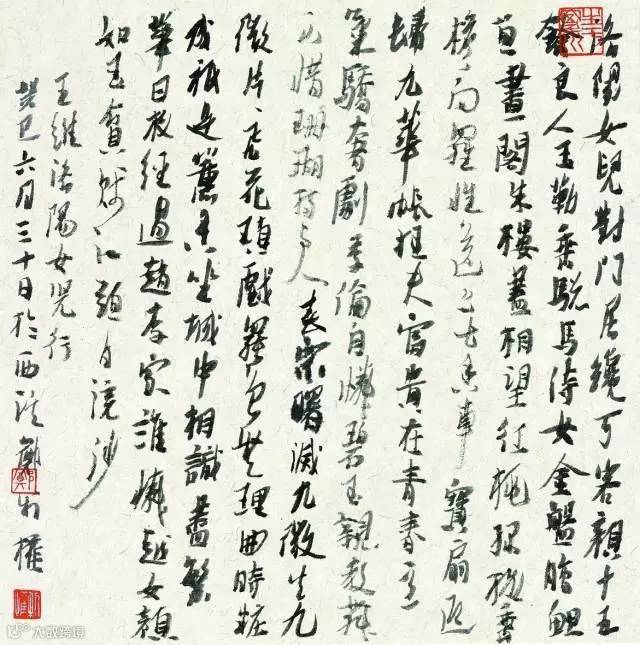 洛陽女兒對門居纔可容顏十五
餘良人玉勒乘驄馬侍女金盤膾鯉
魚畫閣朱樓盡相望紅桃綠柳垂
檐向羅帷送上七香車寶扇迎
歸九華帳狂夫富貴在青春意
氣驕奢劇季倫自憐碧玉親教舞
不惜珊瑚持與人春窗曙滅九微火九
微片片飛花瑣戲罷曾無理曲時粧
成祇是薰香坐城中相識盡繁
華日夜經過趙李家誰憐越女顏
如玉貧賤江頭自浣沙
王維洛陽女兒行
癸巳六月三十日於西溪鄭力權
大数跨境